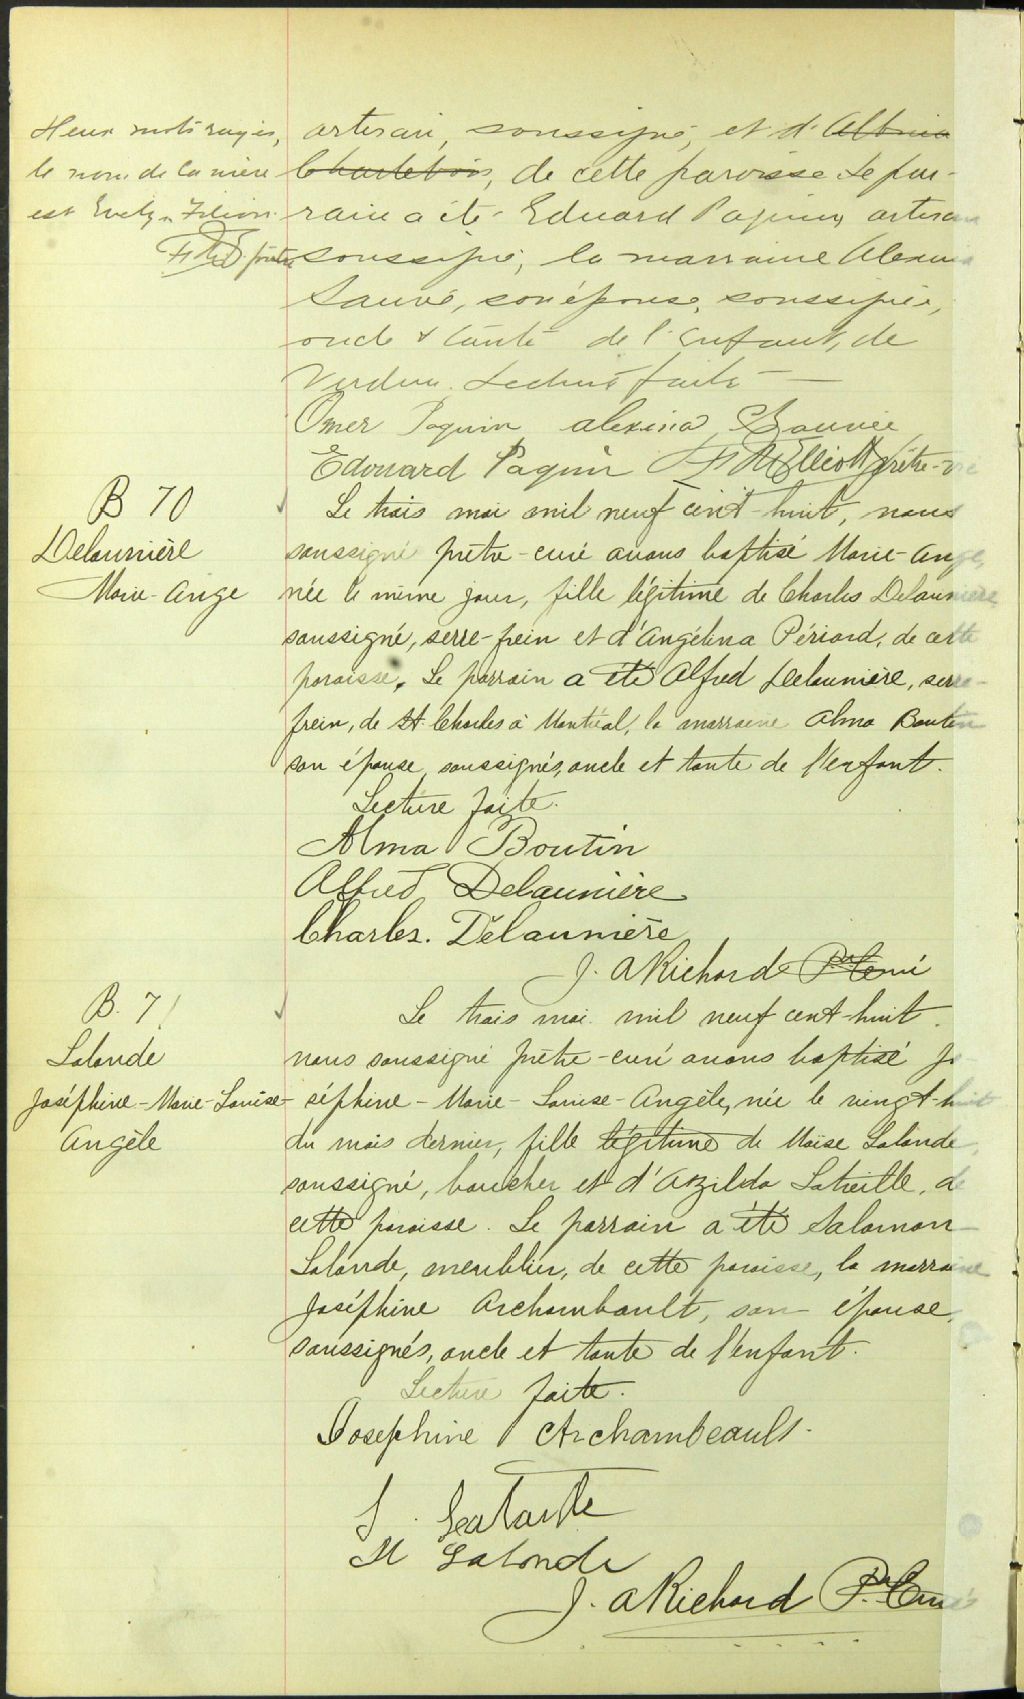 Deux mots rayés,
le nom de la mère
est Evelyn Filion
prêtre
artisan, soussigné, et d'Albina
Charlebois, de cette paroisse. Le par-
rain a été Eduard Paquin, artisan
soussigné, la marraine Alexina
Sauvé, son épouse, soussignée,
oncle & tante de l'enfant, de
Verdun. Lecture faite —
Omer Paquin alexina Sauvée
Edouard Paquin Elliott prêtre-vic
B 70
Delaunière
Marie-Ange
Le trois mai mil neuf cent-huit, nous
soussigné prêtre-curé avons baptisé Marie-Ange,
née le même jour, fille légitime de Charles Delaunière
soussigné, serre-frein et d'Angélina Périard, de cette
paroisse. Le parrain a été Alfred Delaunière, serre-
frein, de St. Charles à Montréal, la marraine Alma Boutin
son épouse, soussignés, oncle et tante de l'enfant.
Lecture faite.
Alma Boutin
Alfred Delaunière
Charles. Délaunière
J. A Richard Ptre Curé
B. 71
Lalonde
Joséphine-Marie-Louise-
Angèle
Le trois mai mil neuf cent-huit.
nous soussigné prêtre-curé avons baptisé Jo-
séphine-Marie-Louise-Angèle, née le vingt-huit
du mois dernier, fille légitime de Moïse Lalonde,
soussigné, boucher et d'Azilda Latreille, de
cette paroisse. Le parrain a été Salomon
Lalonde, meublier, de cette paroisse, la marraine
Joséphine Archambault, son épouse,
soussignés, oncle et tante de l'enfant.
Lecture faite.
Josephine Archambeault.
S. Lalonde
M Lalonde
J. A Richard Ptre Curé